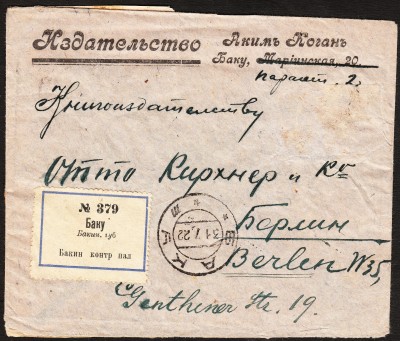 Издательство Акимъ Коганъ
Баку, Маріинская, 20.
парапет. 2.
Книгоиздательству
Отто Кирхнер и Ко
Берлин
Berlin W35,
Genthiner Str. 19.
№ 379
Баку
Бакин. губ
Бакин контр пал
БАКУ
31.7.22